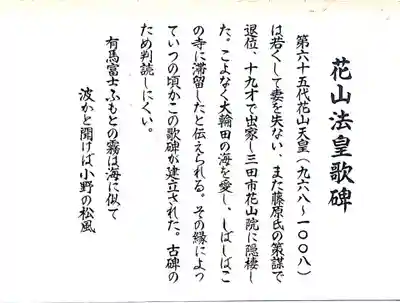 花山法皇歌碑
第六十五代花山天皇(九六八〜一〇〇八)
は若くして妻を失ない、また藤原氏の策謀で
退位、十九才で出家し三田市花山院に隠棲し
た。こよなく大輪田の海を愛し、しばしばこ
の寺に滞留したと伝えられる。その縁によっ
ていつの頃かこの歌碑が建立された。古碑の
ため判読しにくい。
有馬富士ふもとの霧は海に似て
波かと聞けば小野の松風